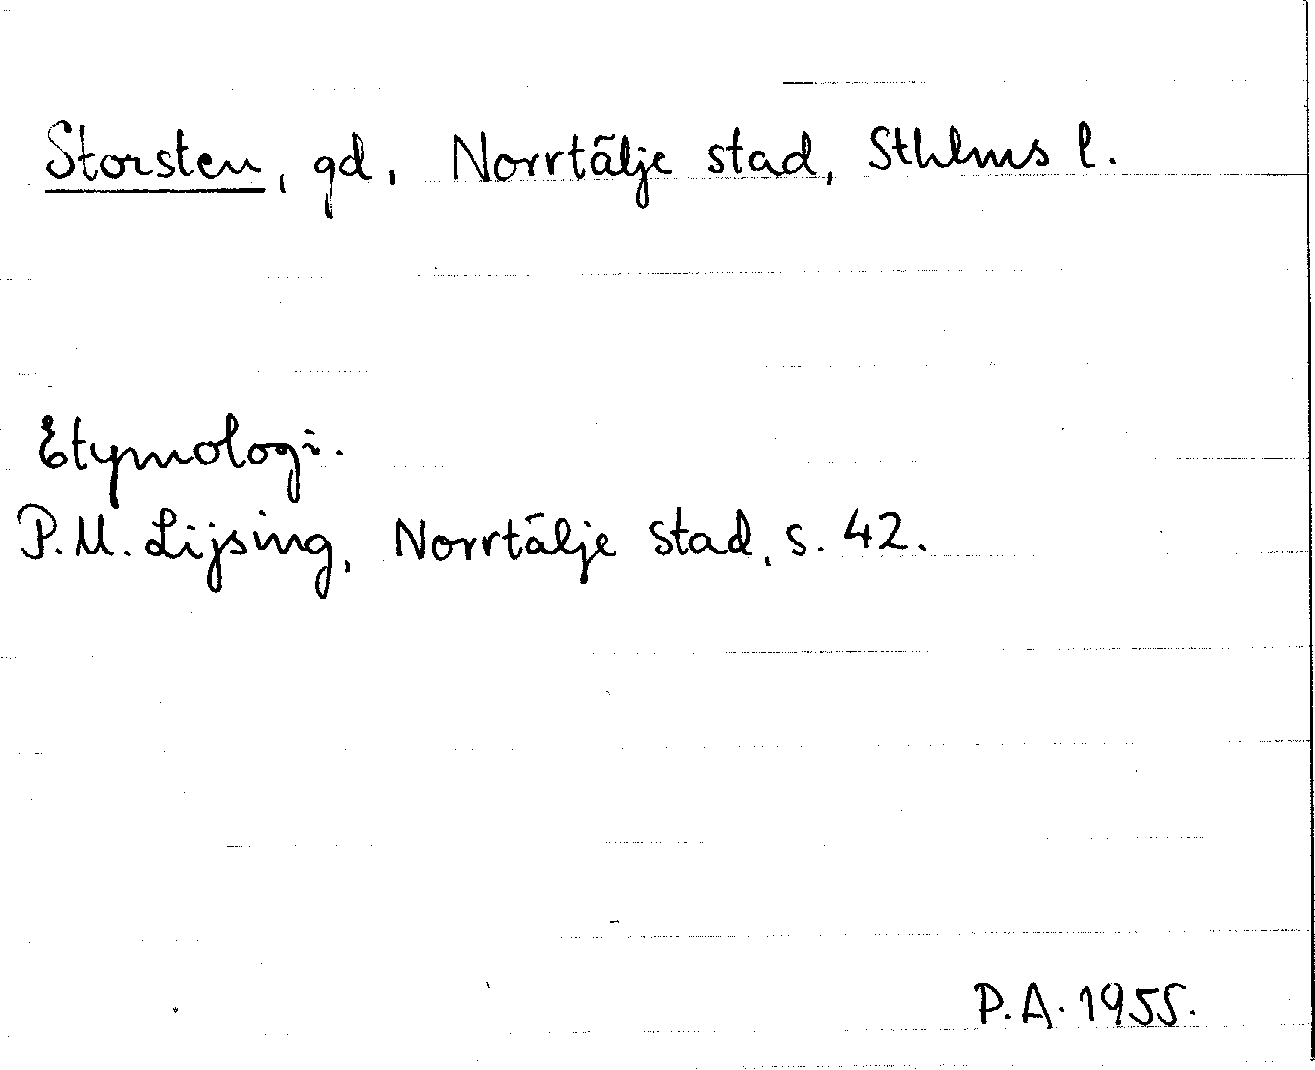 Storsten, gd, Norrtälje stad, Sthlms l.
Etymologi.
P.M. Lijsing, Norrtälje stad, s. 42.
P.A. 1955.